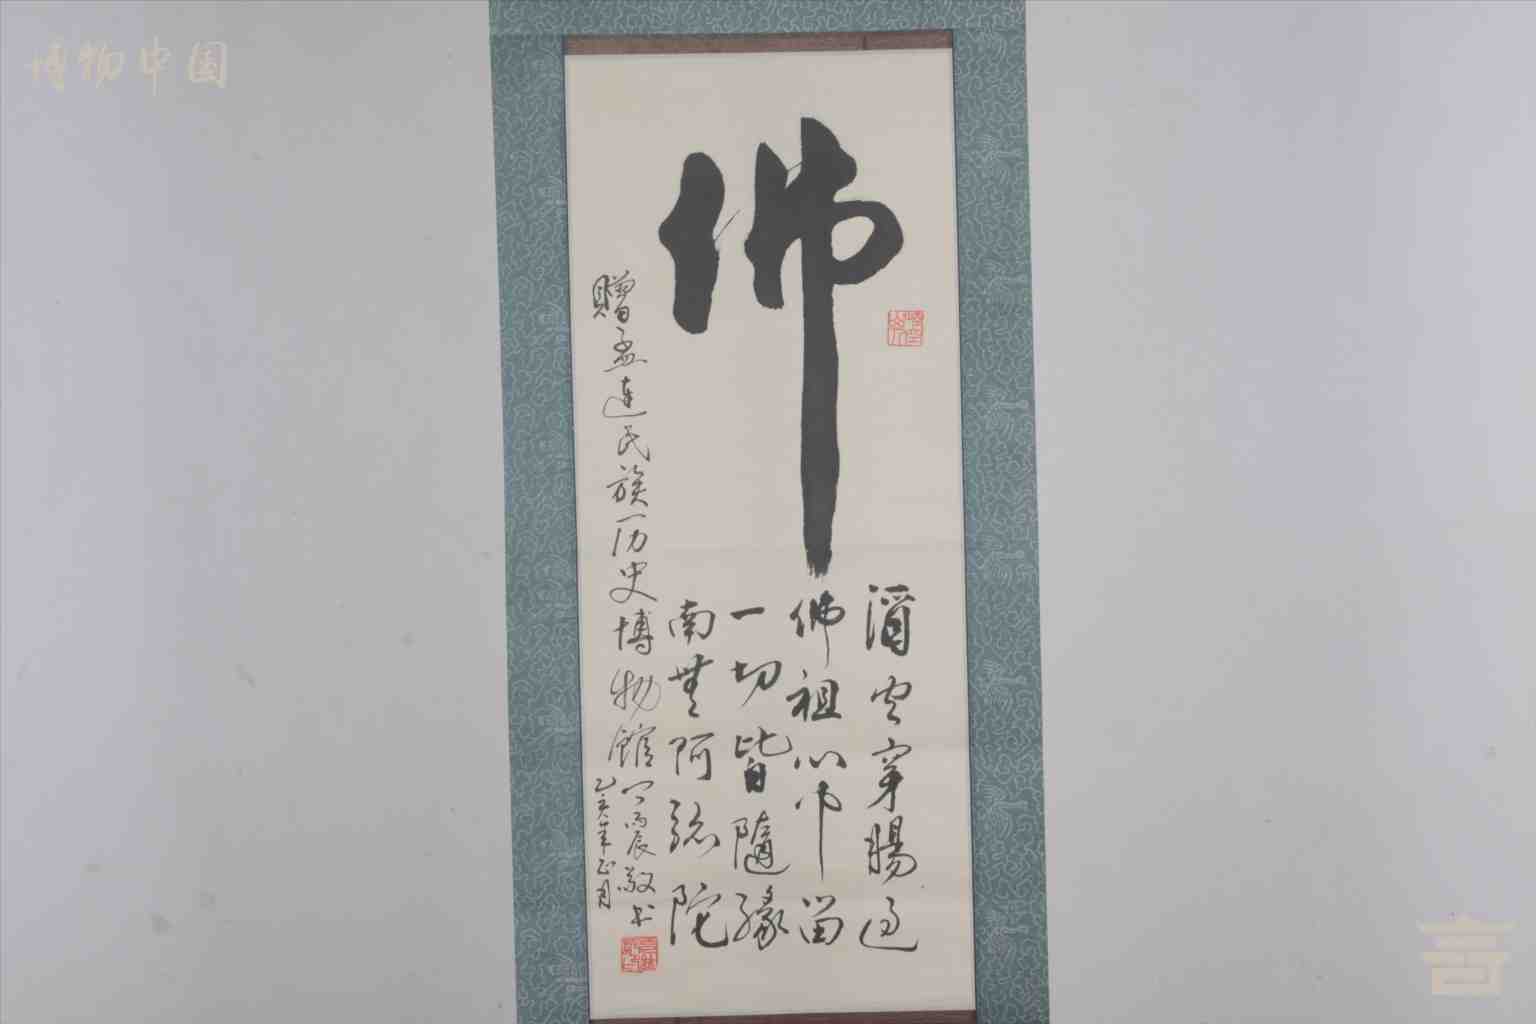 博物中国
佛
酒肉穿腸過
佛祖心中留
一切皆隨緣
南無阿彌陀
赠孟连民族历史博物館
丙辰敬书
乙亥年正月